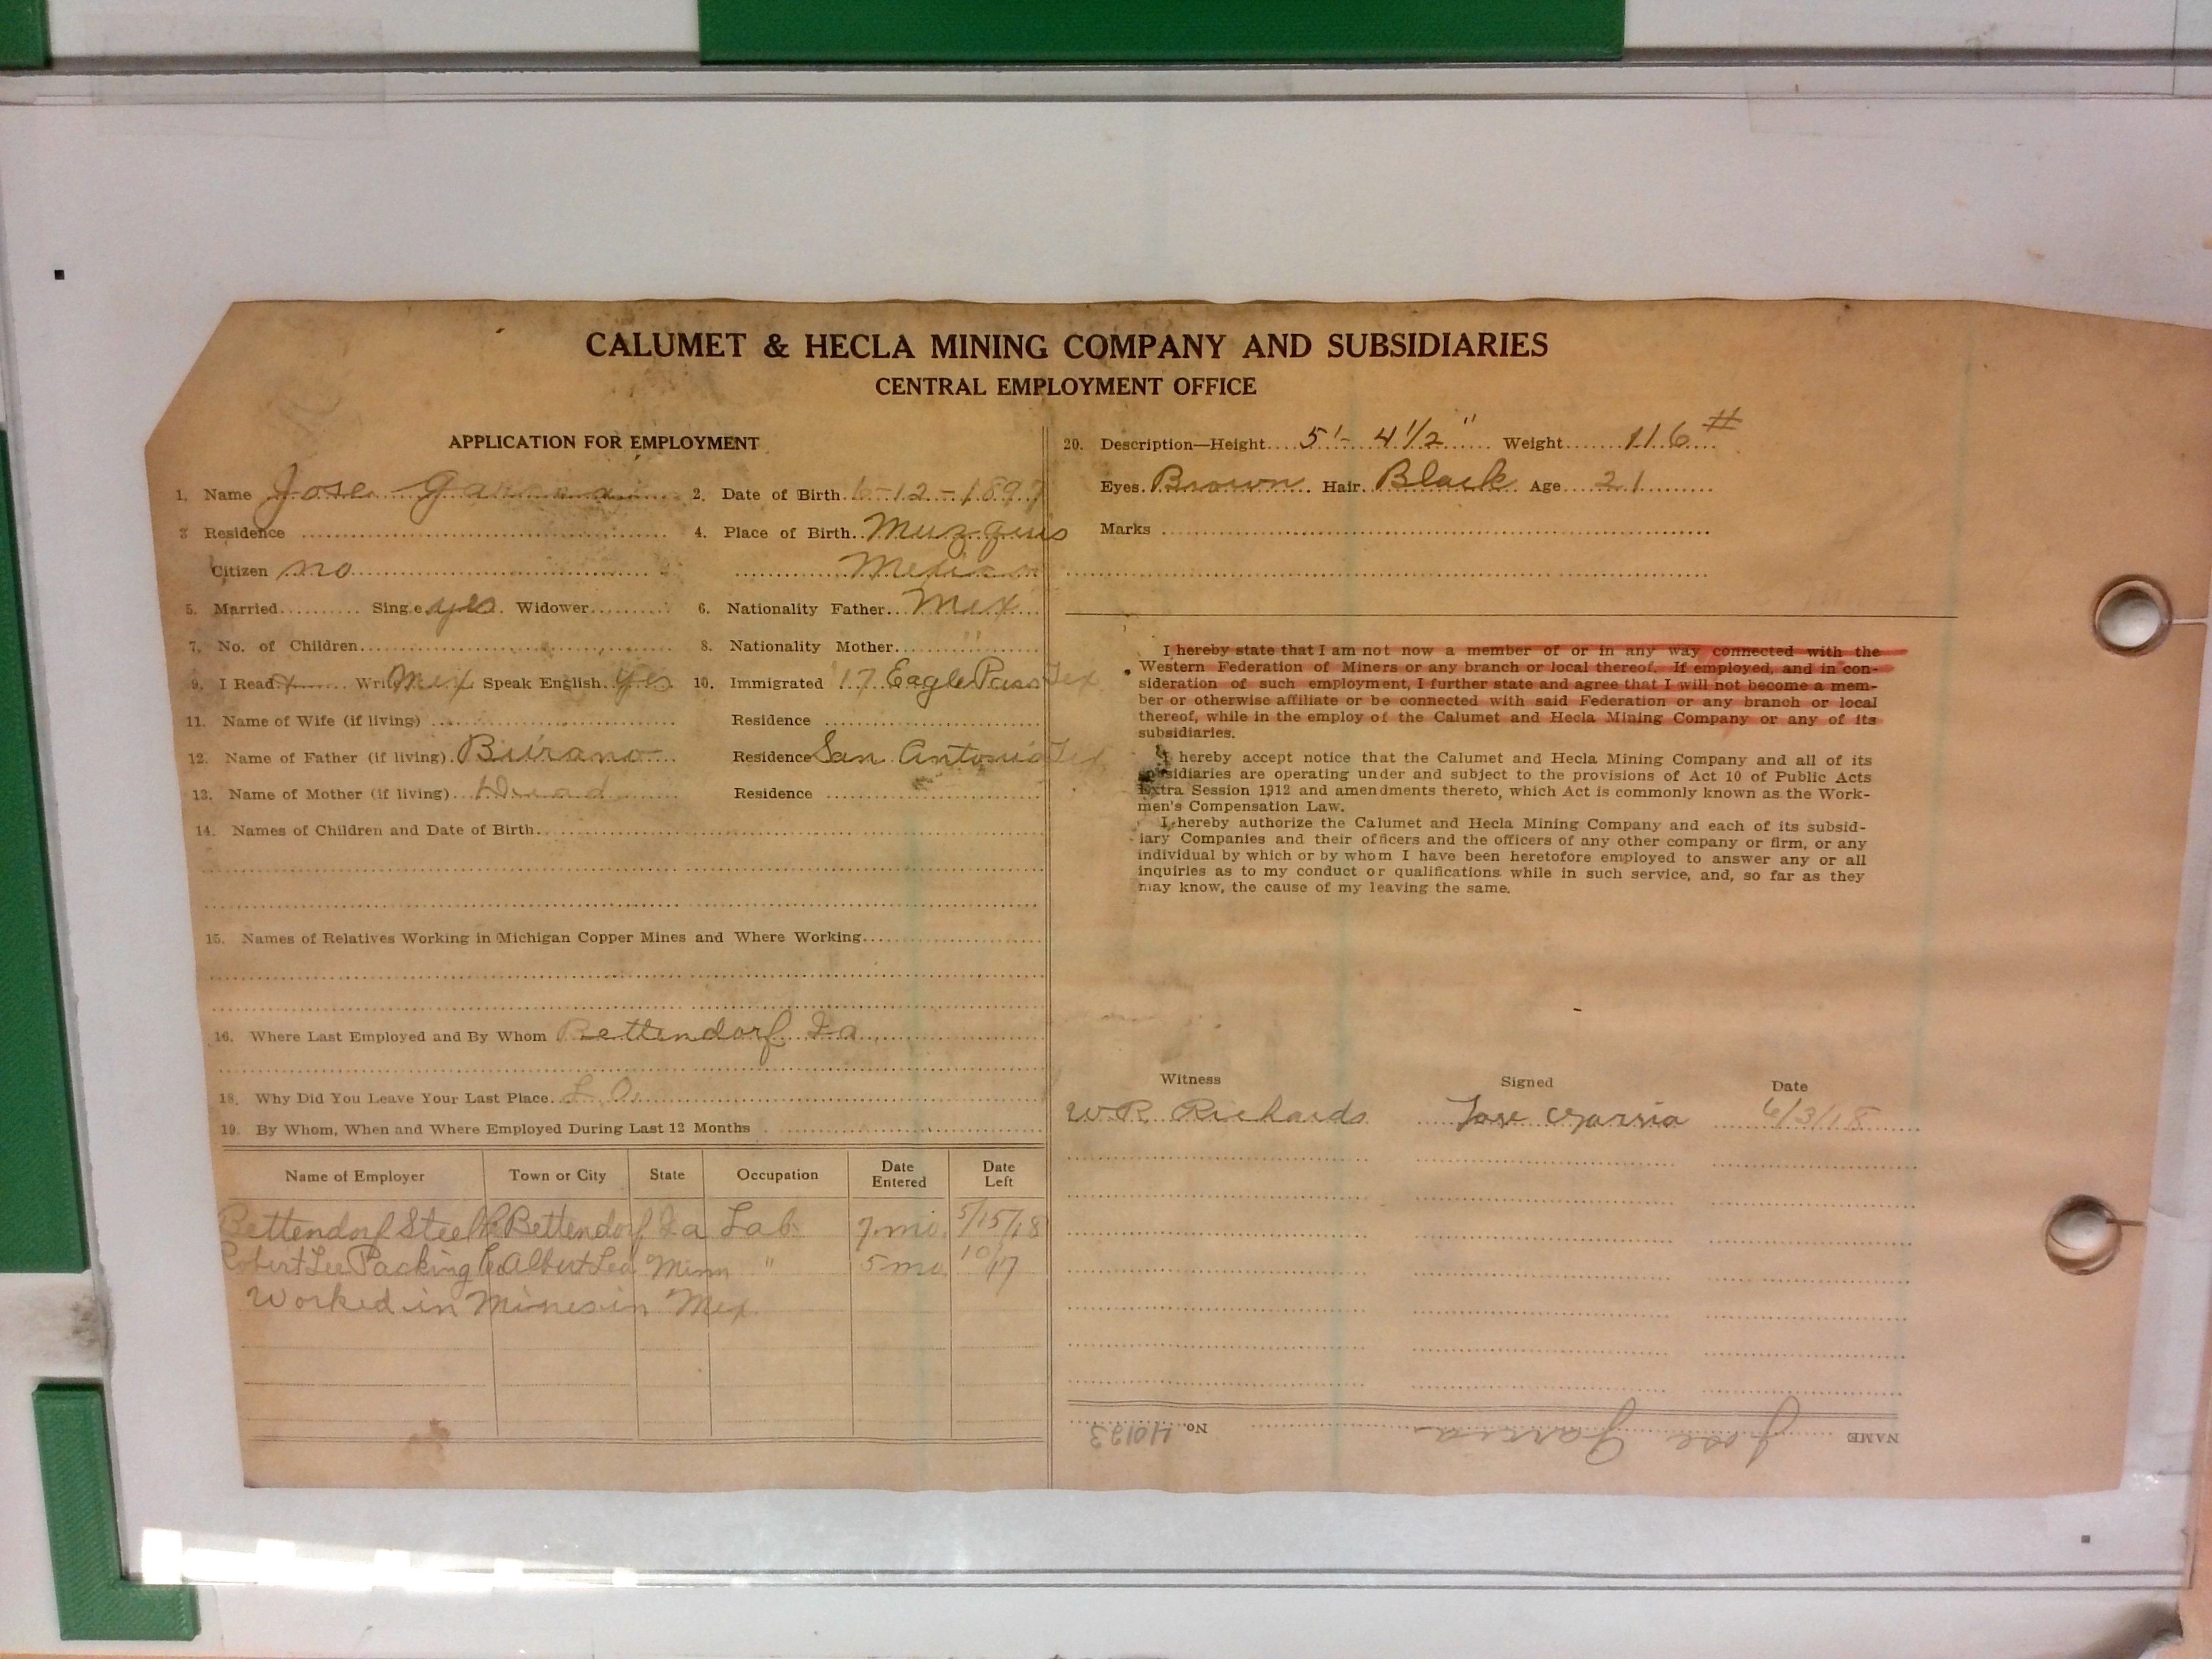 CALUMET & HECLA MINING COMPANY AND SUBSIDIARIES
CENTRAL EMPLOYMENT OFFICE
APPLICATION FOR EMPLOYMENT
1. Name Jose Garcia
2. Date of Birth 6-12-1897
3 Residence
4. Place of Birth Muzquis
Citizen no
Mexico
5. Married Single yes Widower
6. Nationality Father Mex
7. No. of Children
8. Nationality Mother "
9. I Read x Write Mex Speak English Yes
10. Immigrated 17 Eagle Pass Tex
11. Name of Wife (if living)
Residence
12. Name of Father (if living) Burano
Residence San Antonio Tex
13. Name of Mother (if living) Dead
Residence
14. Names of Children and Date of Birth
15. Names of Relatives Working in Michigan Copper Mines and Where Working
16. Where Last Employed and By Whom Bettendorf Ia
18. Why Did You Leave Your Last Place L.O.
19. By Whom, When and Where Employed During Last 12 Months
Name of Employer Town or City State Occupation Date Entered Date Left
Bettendorf Steel Co Bettendorf Ia Lab 7 mo 5/15/18
Robert Lee Packing Co Albert Lea Minn " 5 mo 10/17
Worked in Mines in Mex
20. Description—Height 5'- 4 1/2" Weight 116 #
Eyes Brown Hair Black Age 21
Marks
I hereby state that I am not now a member of or in any way connected with the
Western Federation of Miners or any branch or local thereof. If employed, and in con-
sideration of such employment, I further state and agree that I will not become a mem-
ber or otherwise affiliate or be connected with said Federation or any branch or local
thereof, while in the employ of the Calumet and Hecla Mining Company or any of its
subsidiaries.
I hereby accept notice that the Calumet and Hecla Mining Company and all of its
subsidiaries are operating under and subject to the provisions of Act 10 of Public Acts
Extra Session 1912 and amendments thereto, which Act is commonly known as the Work-
men's Compensation Law.
I hereby authorize the Calumet and Hecla Mining Company and each of its subsid-
iary Companies and their officers and the officers of any other company or firm, or any
individual by which or by whom I have been heretofore employed to answer any or all
inquiries as to my conduct or qualifications while in such service, and, so far as they
may know, the cause of my leaving the same.
Witness Signed Date
W.R. Richards Jose Garcia 6/3/18
NAME Jose Garcia No. 40123